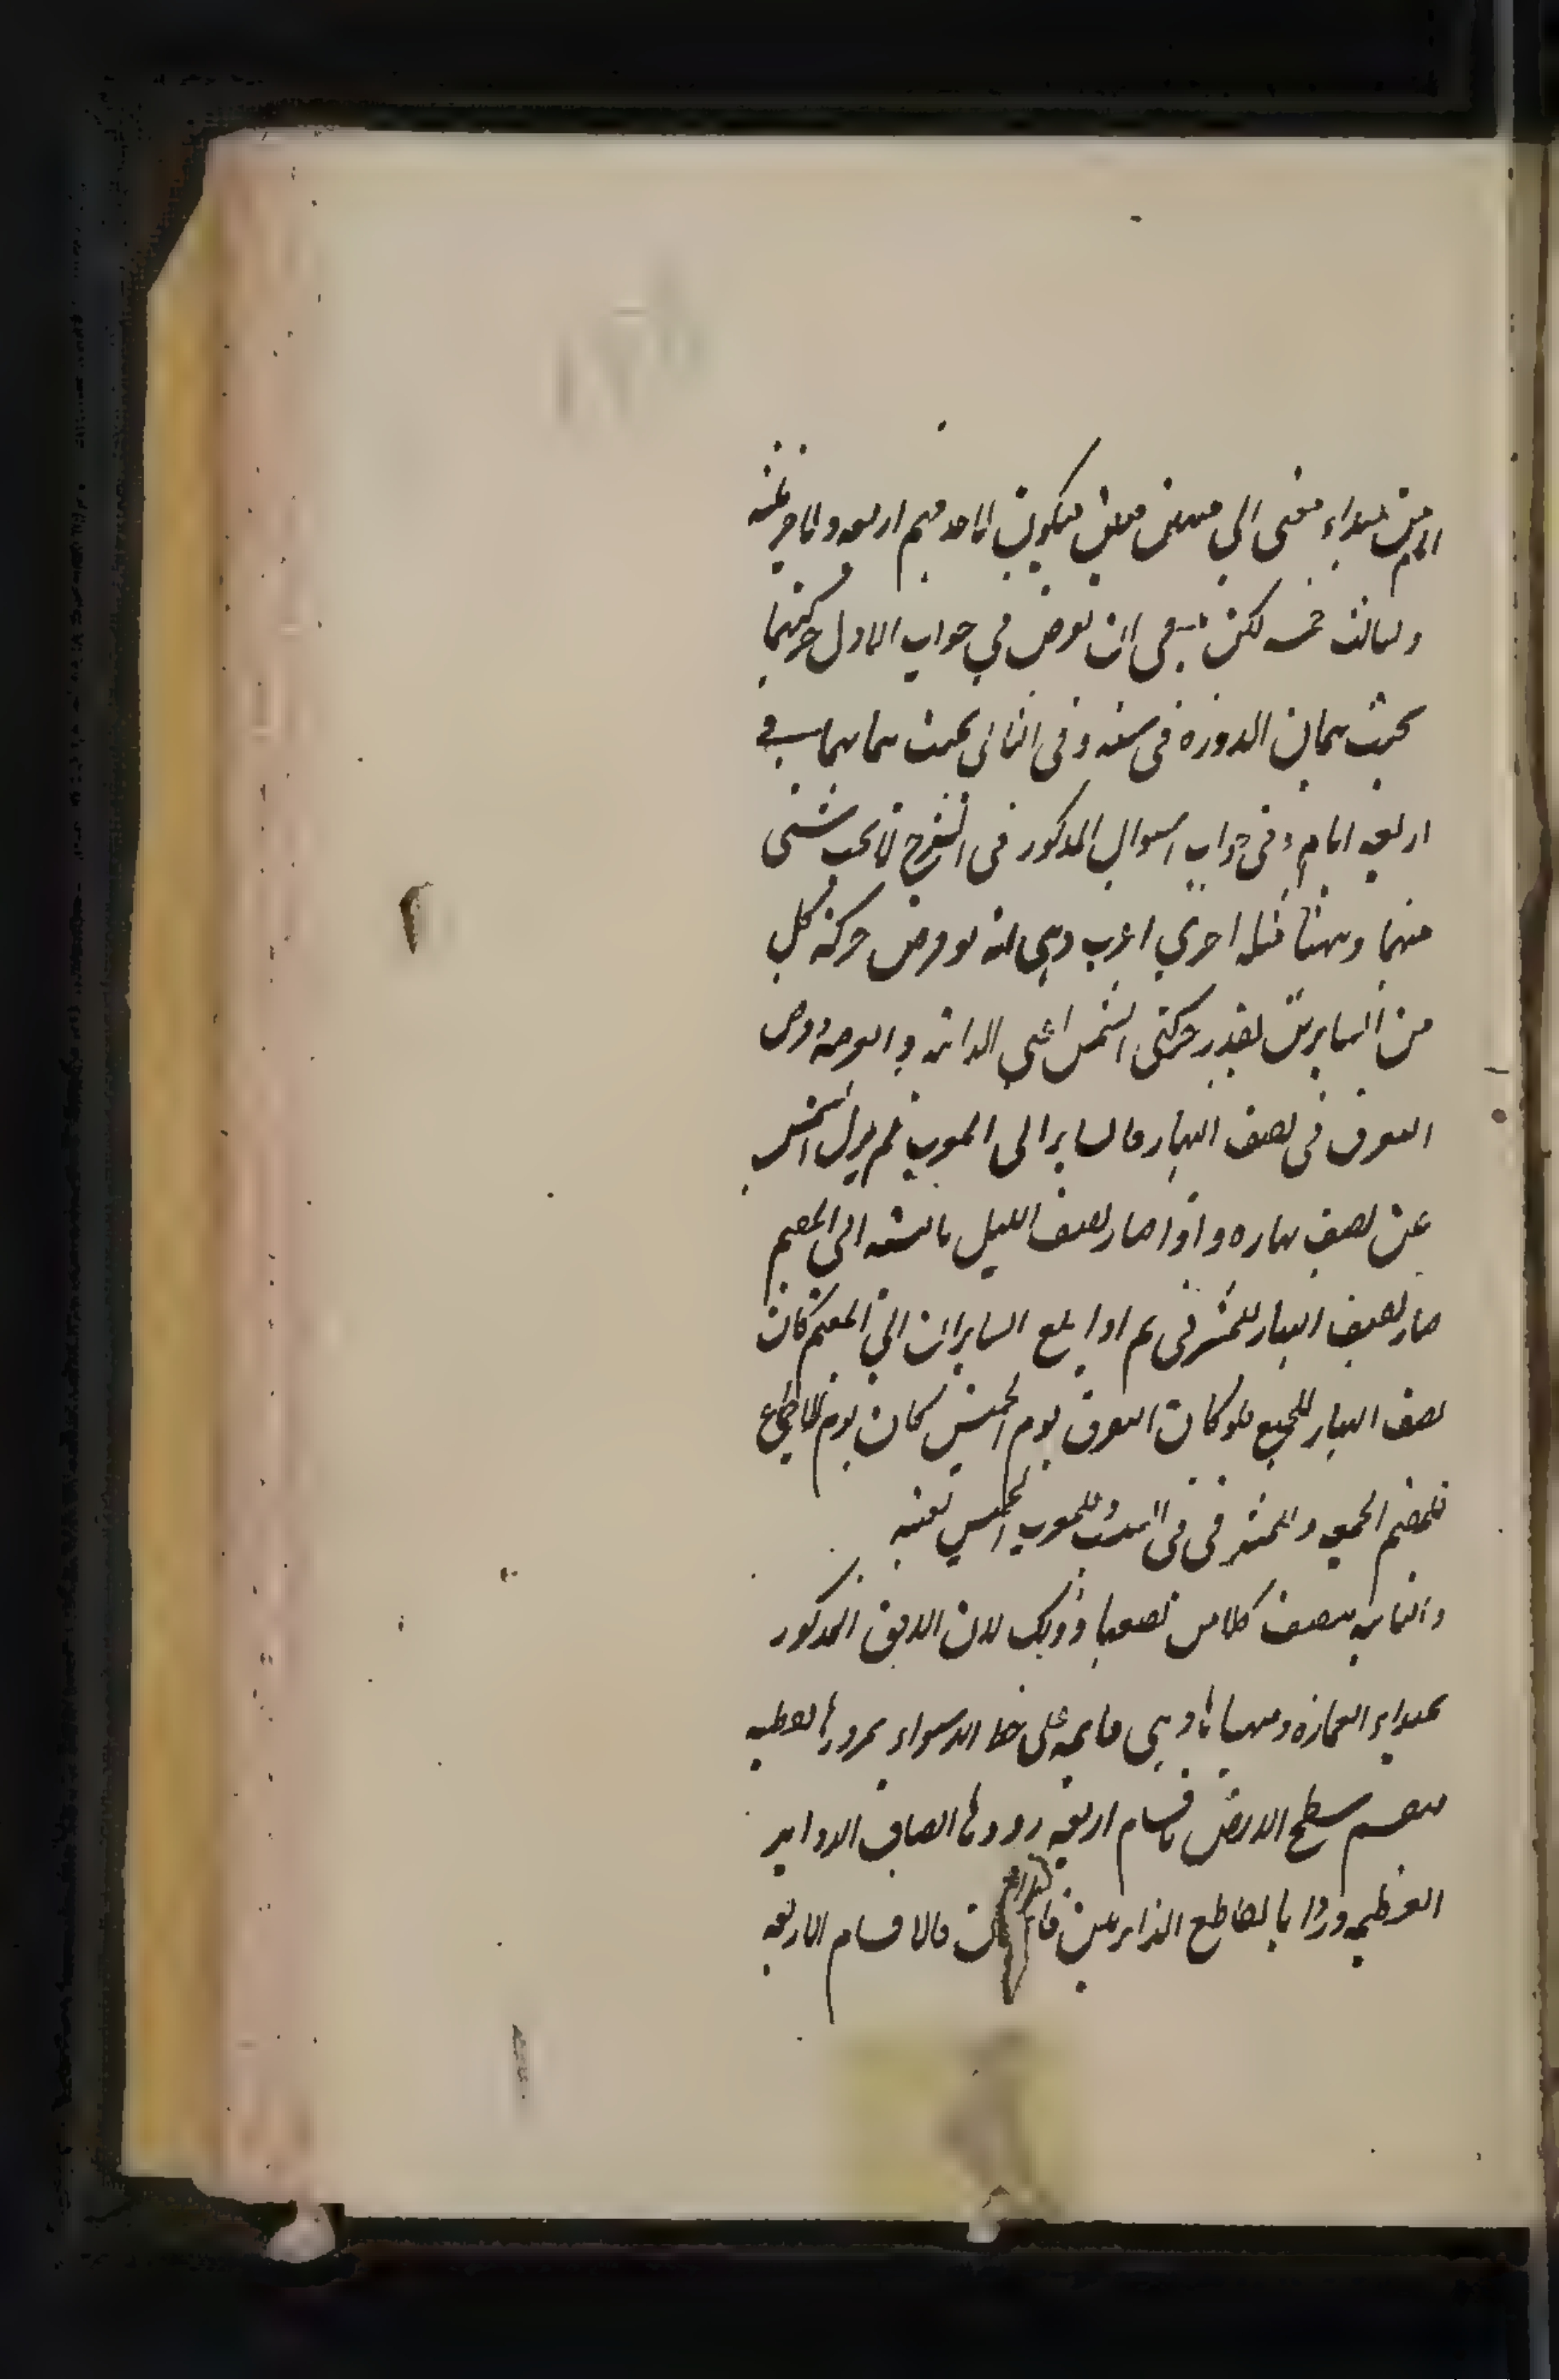 من مبداء معين الى مسهى معين فيكون لاحدهم اربعة ولاخر ثلثة
ولثالث خمسة لكن ينبغى ان يفرض في جواب الاول حركتهما
بحيث يتمان الدورة في سنة وفى الثانى بحيث يتمانها في
اربعة ايام وفى جواب السوال المذكور فى الشرح لا يجب شئ
منهما وههنا مسئلة اخرى اغرب وهى انه لو فرض حركة كل
من السايرين بقدر حركتى الشمس اعنى الذاتية والعرضية وفرض
التفرق فى نصف النهار فالساير الى المغرب لم يزل الشمس
عن نصف نهاره واذا صار نصف الليل بالنسبة الى المقيم
صار نصف النهار للمشرقى ثم اذا بلغ السايران الى المقيم كان
نصف النهار للجميع فلو كان التفرق يوم الخميس كان يوم الاجتماع
للمقيم الجمعة وللمشرقى السبت وللمغربى الخميس بعينه
والثانية ينصف كلا من نصفيها وذلك لان الافق المذكور
بمبداء العمارة ومنتهاها وهى قايمة على خط الاستواء بمرورها بقطبيه
ينقسم سطح الارض باقسام اربعة حدودها انصاف الدواير
العظيمة وزوايا تقاطع الدايرتين قايمات فالاقسام الاربعة